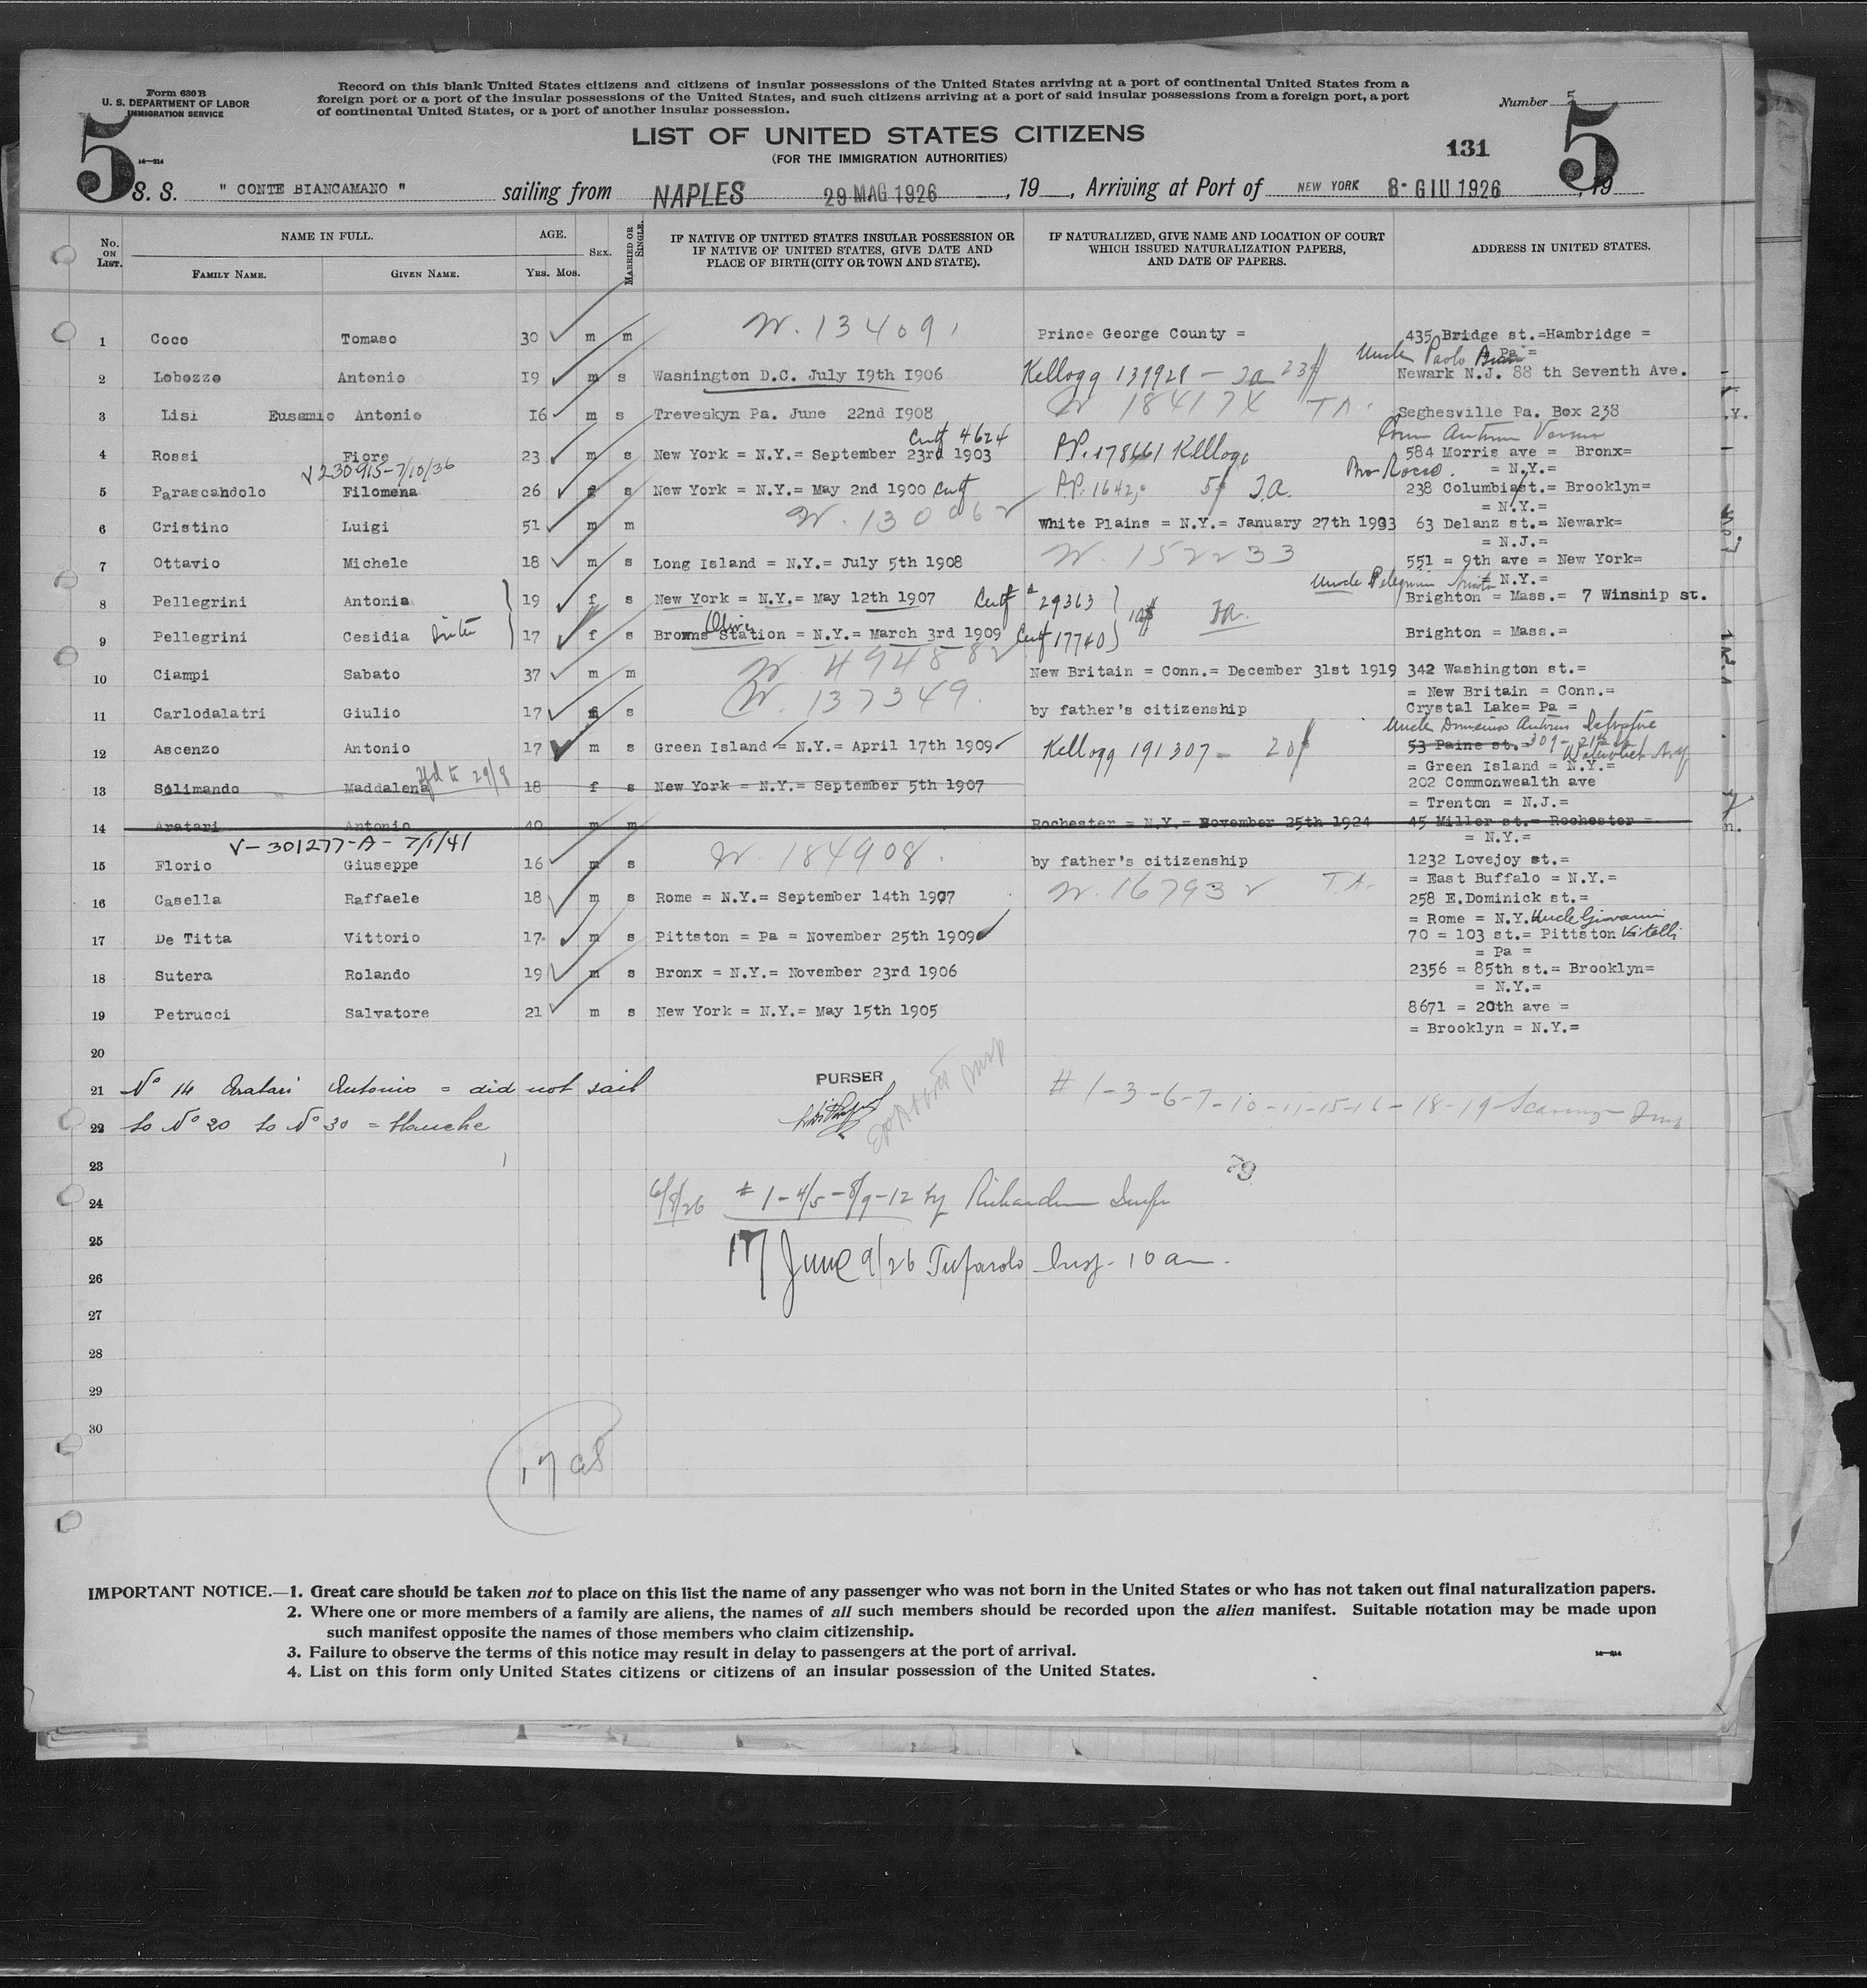 Form 630 B
U. S. DEPARTMENT OF LABOR
IMMIGRATION SERVICE
Record on this blank United States citizens and citizens of insular possessions of the United States arriving at a port of continental United States from a
foreign port or a port of the insular possessions of the United States, and such citizens arriving at a port of said insular possessions from a foreign port, a port
of continental United States, or a port of another insular possession.
Number 5
5
LIST OF UNITED STATES CITIZENS
(FOR THE IMMIGRATION AUTHORITIES)
131
5
S. S. " CONTE BIANCAMANO " sailing from NAPLES 29 MAG 1926, 19__, Arriving at Port of NEW YORK 8- GIU 1926, 19
No. ON LIST. NAME IN FULL. AGE. SEX. MARRIED OR SINGLE. IF NATIVE OF UNITED STATES INSULAR POSSESSION OR IF NATIVE OF UNITED STATES, GIVE DATE AND PLACE OF BIRTH (CITY OR TOWN AND STATE). IF NATURALIZED, GIVE NAME AND LOCATION OF COURT WHICH ISSUED NATURALIZATION PAPERS, AND DATE OF PAPERS. ADDRESS IN UNITED STATES.
FAMILY NAME. GIVEN NAME. YRS. MOS.
1 Coco Tomaso 30 m m N. 134091 Prince George County = 435 Bridge st.=Hambridge =
Uncle Paolo Pa =
2 Lobozzo Antonio 19 m s Washington D.C. July 19th 1906 Kellogg Newark N.J. 88 th Seventh Ave.
N. 184174 T.A.
3 Lisi Eusamio Antonio 16 m s Treveskyn Pa. June 22nd 1908 Seghesville Pa. Box 238
Certf 4624
4 Rossi Fiore 23 m s New York = N.Y.= September 23rd 1903 PP. 178661 Kellogg 584 Morris ave = Bronx=
V230915-7/10/36 Bro Rocco. = N.Y.=
5 Parascandolo Filomena 26 f s New York = N.Y.= May 2nd 1900 Certf 238 Columbia st.= Brooklyn=
= N.Y.=
6 Cristino Luigi 51 m m White Plains = N.Y.= January 27th 1903 63 Delanz st.= Newark=
= N.J.=
7 Ottavio Michele 18 m s Long Island = N.Y.= July 5th 1908 N. 152233 551 = 9th ave = New York=
= N.Y.=
8 Pellegrini Antonia 19 f s New York = N.Y.= May 12th 1907 Certf # 29363 Brighton = Mass.= 7 Winship st.
Olive
9 Pellegrini Cesidia Sister 17 f s Browns Station = N.Y.= March 3rd 1909 Certf 17740 Brighton = Mass.=
10 Ciampi Sabato 37 m m N 494882 New Britain = Conn.= December 31st 1919 342 Washington st.=
= New Britain = Conn.=
11 Carlodalatri Giulio 17 s N. 137349. by father's citizenship Crystal Lake= Pa =
12 Ascenzo Antonio 17 m s Green Island = N.Y.= April 17th 1909 Kellogg 191307 - 53 Paine st.=
= Green Island = N.Y.=
13 Solimando Maddalena 18 f s New York = N.Y.= September 5th 1907 202 Commonwealth ave
= Trenton = N.J.=
14 Aratari Antonio 40 m m Rochester = N.Y.= November 25th 1924 45 Miller st.= Rochester =
= N.Y.=
V-301277-A - 7/1/41
15 Florio Giuseppe 16 m s N. 184908. by father's citizenship 1232 Lovejoy st.=
= East Buffalo = N.Y.=
16 Casella Raffaele 18 m s Rome = N.Y.= September 14th 1907 N. 167932 T.A. 258 E.Dominick st.=
= Rome = N.Y. Uncle Giovanni
17 De Titta Vittorio 17 m s Pittston = Pa = November 25th 1909 70 = 103 st.= Pittston Vitelli
= Pa =
18 Sutera Rolando 19 m s Bronx = N.Y.= November 23rd 1906 2356 = 85th st.= Brooklyn=
= N.Y.=
19 Petrucci Salvatore 21 m s New York = N.Y.= May 15th 1905 8671 = 20th ave =
= Brooklyn = N.Y.=
20
21 No 14 Aratari Antonio = did not sail PURSER # 1-3-6-7-10-11-15-16-18-19
22 No 20 No 30 =
23
24 6/8/26 # 1-4/5-8/9-12 by
25 17 June 9/26 Insp. 10 am.
26
27
28
29
30
IMPORTANT NOTICE.—1. Great care should be taken not to place on this list the name of any passenger who was not born in the United States or who has not taken out final naturalization papers.
2. Where one or more members of a family are aliens, the names of all such members should be recorded upon the alien manifest. Suitable notation may be made upon
such manifest opposite the names of those members who claim citizenship.
3. Failure to observe the terms of this notice may result in delay to passengers at the port of arrival.
4. List on this form only United States citizens or citizens of an insular possession of the United States.